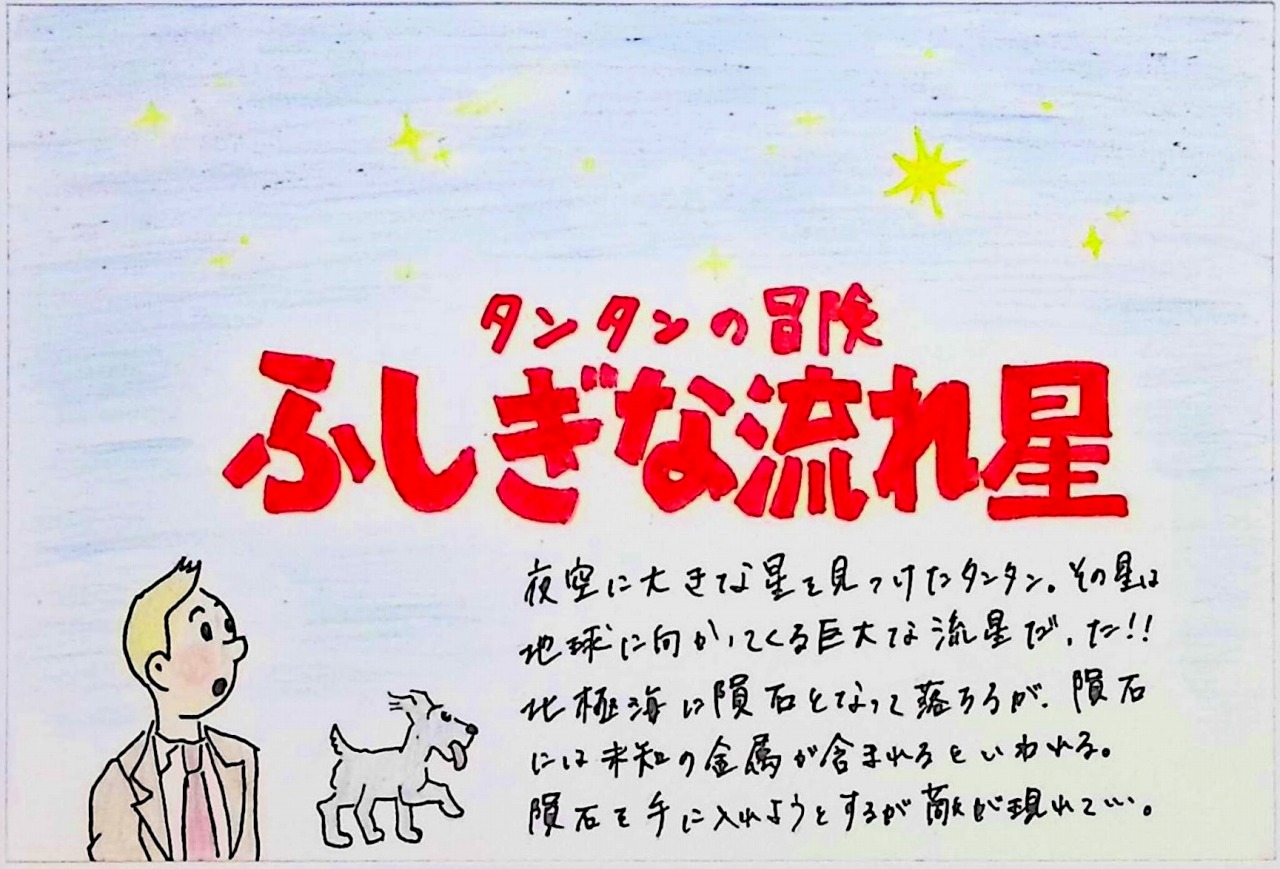 タンタンの冒険
ふしぎな流れ星
夜空に大きな星を見つけたタンタン。その星は
地球に向かってくる巨大な流星だった!!
北極海に隕石となって落ちるが、隕石
には未知の金属が含まれるといわれる。
隕石を手に入れようとするが敵が現れて…。